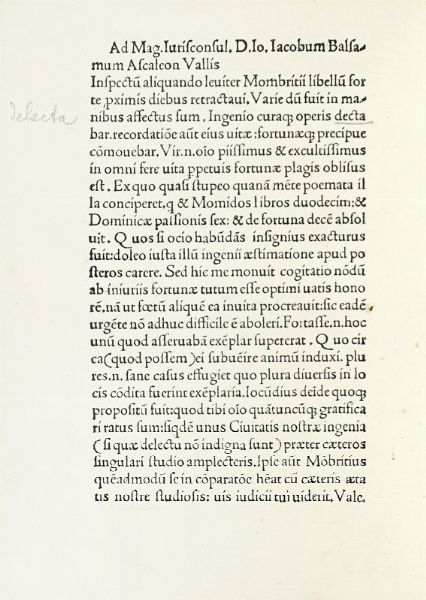 Ad Mag. Iurisconsul. D. Io. Iacobum Balsa-
mum Ascaleon Vallis
Inspectū aliquando leuiter Mombritii libellū for
te ꝓximis diebus retractaui. Varie dū fuit in ma-
nibus affectus sum. Ingenio curaqꝫ operis decta
bar. recordatiōe aūt eius uitæ: fortunæqꝫ precipue
cōmouebar. Vir. n. oīo piissimus & excultissimus
in omni fere uita ꝑpetuis fortunæ plagis oblisus
est. Ex quo quasi stupeo quanā mēte poemata il
la conciperet. q & Momidos libros duodecim: &
Dominicæ passionis sex: & de fortuna decē absol
uit. Quos si ocio habūdās insignius exacturus
fuit: doleo iusta illū ingenii æstimatione apud po
steros carere. Sed hic me monuit cogitatio nōdū
ab iniuriis fortunæ tutum esse optimi uatis hono
rē. nā ut fœtū aliquē ea inuita procreauit: sic eadē
urgēte nō adhuc difficile ē aboleri. Fortasse. n. hoc
unū quod asseruabā exēplar supererat. Quo cir
ca (quod possem) ei subuēire animū induxi. plu
res. n. sane casus effugiet quo plura diuersis in lo
cis cōdita fuerint exēplaria. Iocūdius deīde quoqꝫ
propositū fuit: quod tibi oīo quātuncūqꝫ gratifica
ri ratus sum: siqdē unus Ciuitatis nostræ ingenia
(si quæ delectu nō indigna sunt) præter cæteros
singulari studio amplecteris. Ipse aūt Mōbritius
quēadmodū se in cōparatōe hēat cū cæteris æta
tis nostre studiosis: uis iudicii tui uiderit. Vale.
delecta